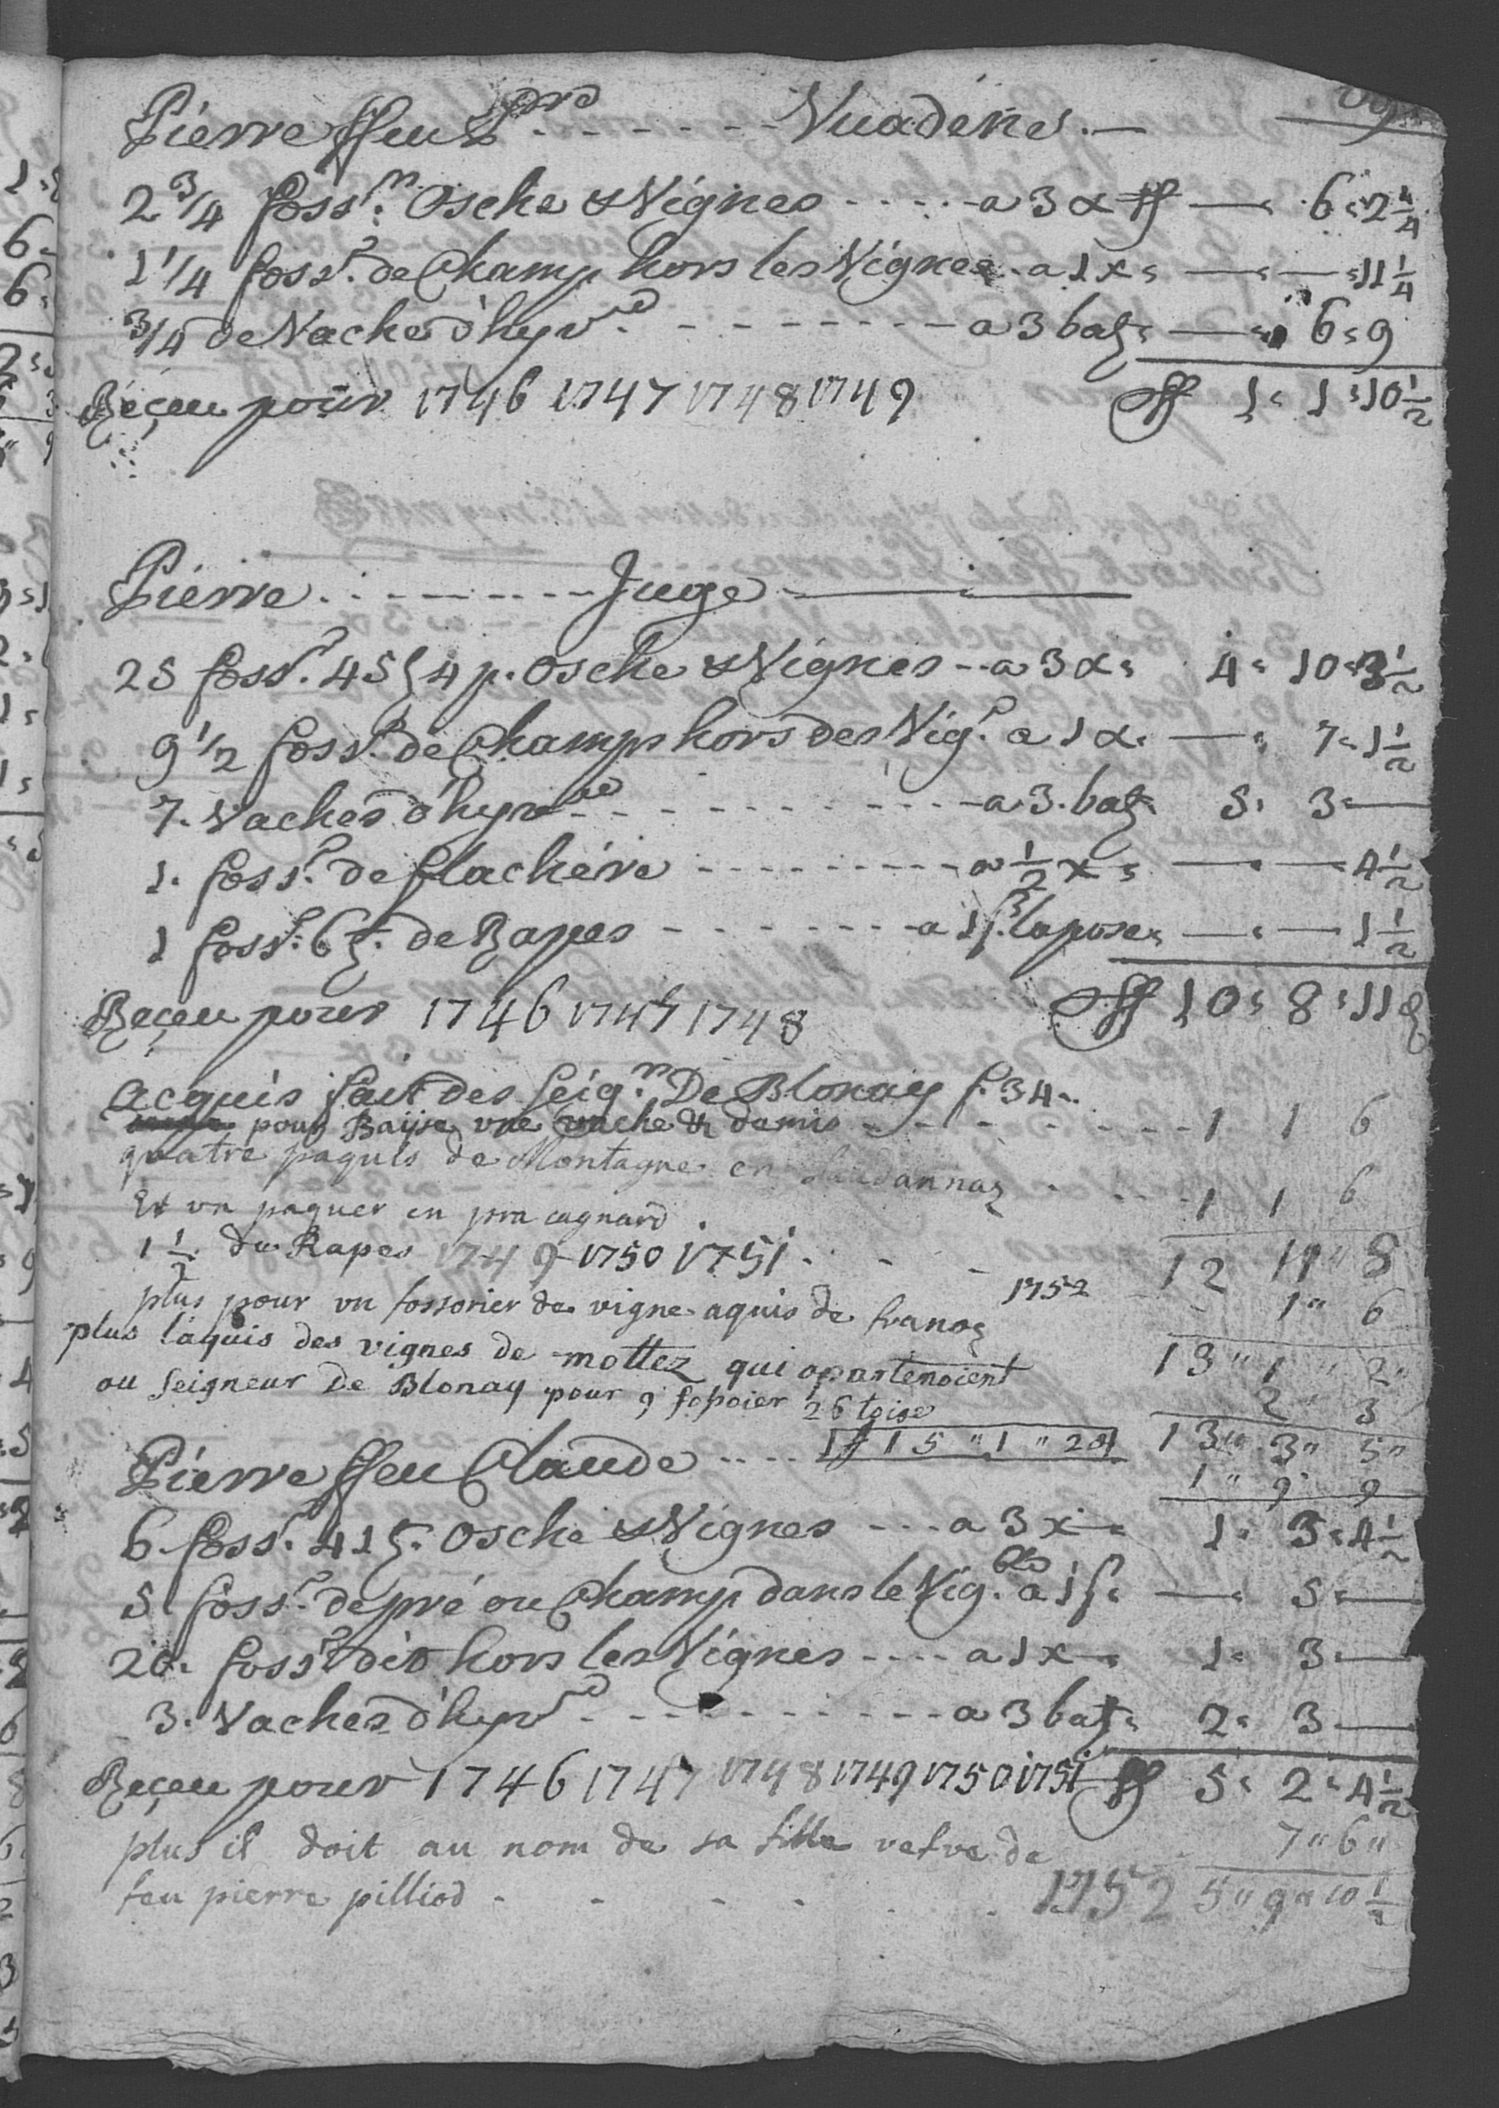 Pierre ffeu P.re - - - - - - - Vuadens. —
2 3/4 foss.rs Osche & Vignes - - - - - a 3 x ff — 6 " 2 1/4
1 1/4 foss.r de Champ hors les Vignes . a 1 x " — " — " 11 1/4
3/4 de Vache d'hyv.e - - - - - - - - - a 3 batz " — " 6 " 9
Reçeu pour 1746 1747 1748 1749 ff 1 " 1 " 10 1/2
Pierre . . - - - - - - - - - Juge —
25 foss.r 45 t 4 p. Osche & Vignes - - a 3 x " 4 " 10 " 3 1/2
9 1/2 foss.r de Champs hors des Vig.s a 1 x " — " 7 " 1 1/2
7. Vaches d'hyv.e - - - - - - - - - a . 3 . batz " 5 " 3 " —
1. foss.r de flachére - - - - - - - - - a 1/2 x " — " — " 4 1/2
1 foss.r 6 t. de Rapes - - - - - - - a 1 s. la pose " — " — 1 1/2
Reçeu pour 1746 1747 1748 ff 10 " 8 " 11
acquis fait des Seig.rs De Blonay f. 34 "
pour Baijse vne vache & demis - - - - - - - - 1 1 6
quatre paquis de Montagne en
Et vn paquer en pra cagnard . . . . - - 1 1 6
1 1/2 de Rapes 1749 1750 1751 . . . - 12 11 " 8
plus pour vn fossorier de vigne aquis de 1752 1 " 6
plus laquis des vignes de mottez qui apartenoient 13 " 1 " 2 "
au Seigneur De Blonay pour 9 fossoier 26 toise 2 " 3
Pierre ffeu Claude - - - - ff 15 " 1 " 2 13 " 3 " 5 "
1 " 9 " 9
6 foss.r 41 t. Osche & Vignes - - - a 3 x — " 1 " 3 " 4 1/2
5 foss.r de pré ou Champ dans le Vig.ble a 1 s. " — " 5 " —
20 " foss.r dit hors les Vignes - - - - a 1 x — " 1 " 3 " —
3. Vaches d'hyv.e - - - - - - - - - - a 3 batz " 2 " 3 —
Reçeu pour 1746 1747 1748 1749 1750 1751 ff 5 " 2 " 4 1/2
plus il doit au nom de sa fille vefve de 7 " 6 "
feu pierre pilliod - - - - - 1752 5 " 9 " 10 1/2